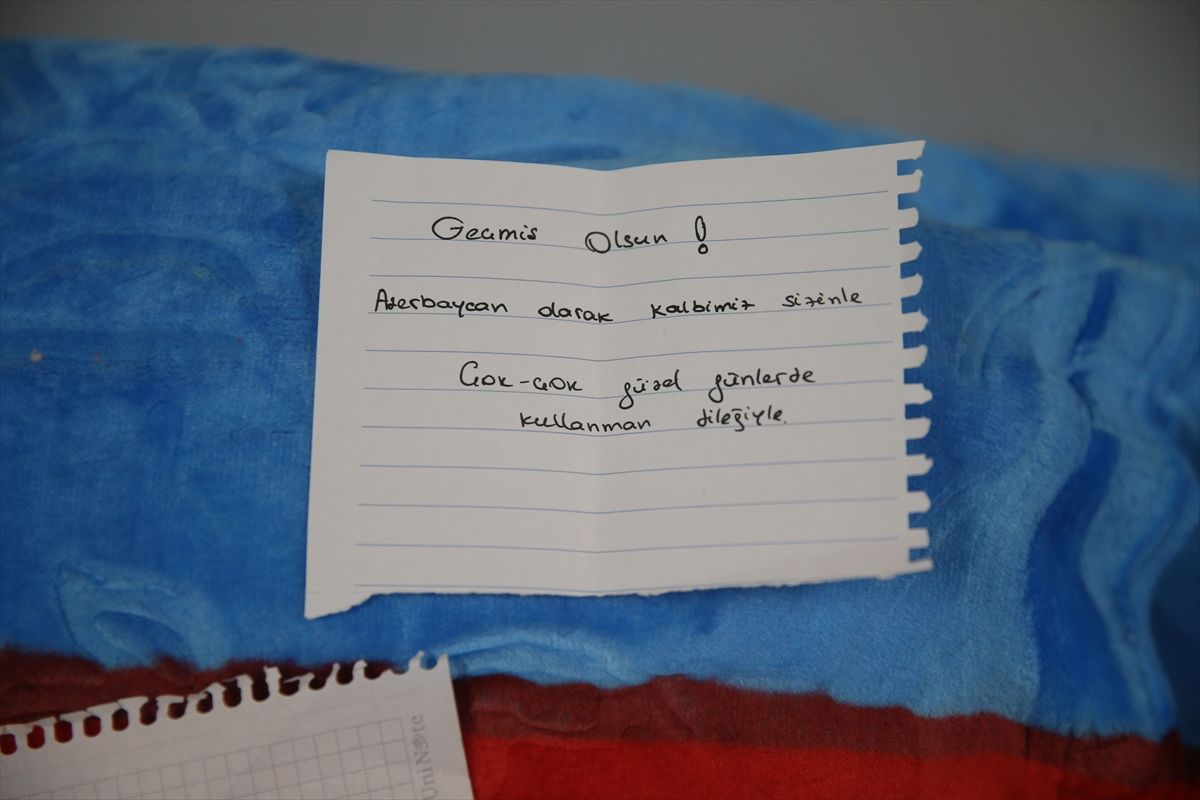 Geçmis Olsun!
Azerbaycan olarak kalbimiz sizinle
Çok-çok güzel günlerde
kullanman dileğiyle.
UniNote